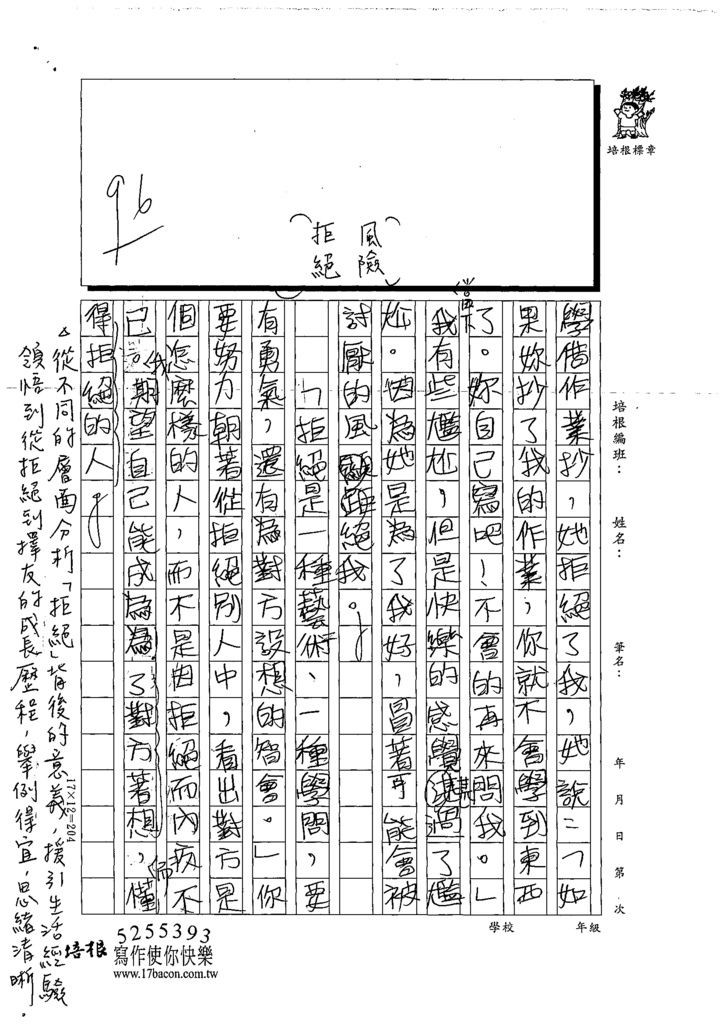 培根標章
96
風險
拒絕
培根編班：　姓名：　筆名：　年　月　日　第　次
學校　年級
學借作業抄，她拒絕了我，她說：「如
果妳抄了我的作業，你就不會學到東西
了。妳自己寫吧！不會的再來問我。」當下
我有些尷尬，但是快樂的感覺淇過了尷
尬。因為她是為了我好，冒著可能會被
討厭的風險拒絕我。
「拒絕是一種藝術、一種學問，要
有勇氣，還有為對方設想的智會。」你
要努力朝著從拒絕別人中，看出對方是
個怎麼樣的人，而不是因拒絕而內疚不
已。我期望自己能成為為了對方著想，而懂
得拒絕的人。
17×12=204
△從不同的層面分析「拒絕」背後的意義，援引生活經驗
領悟到從拒絕到擇友的成長歷程，舉例得宜，思緒清晰。
培根
5255393
寫作使你快樂
www.17bacon.com.tw